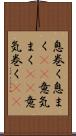 息巻く息ま
く()意気
まく()意
気巻く